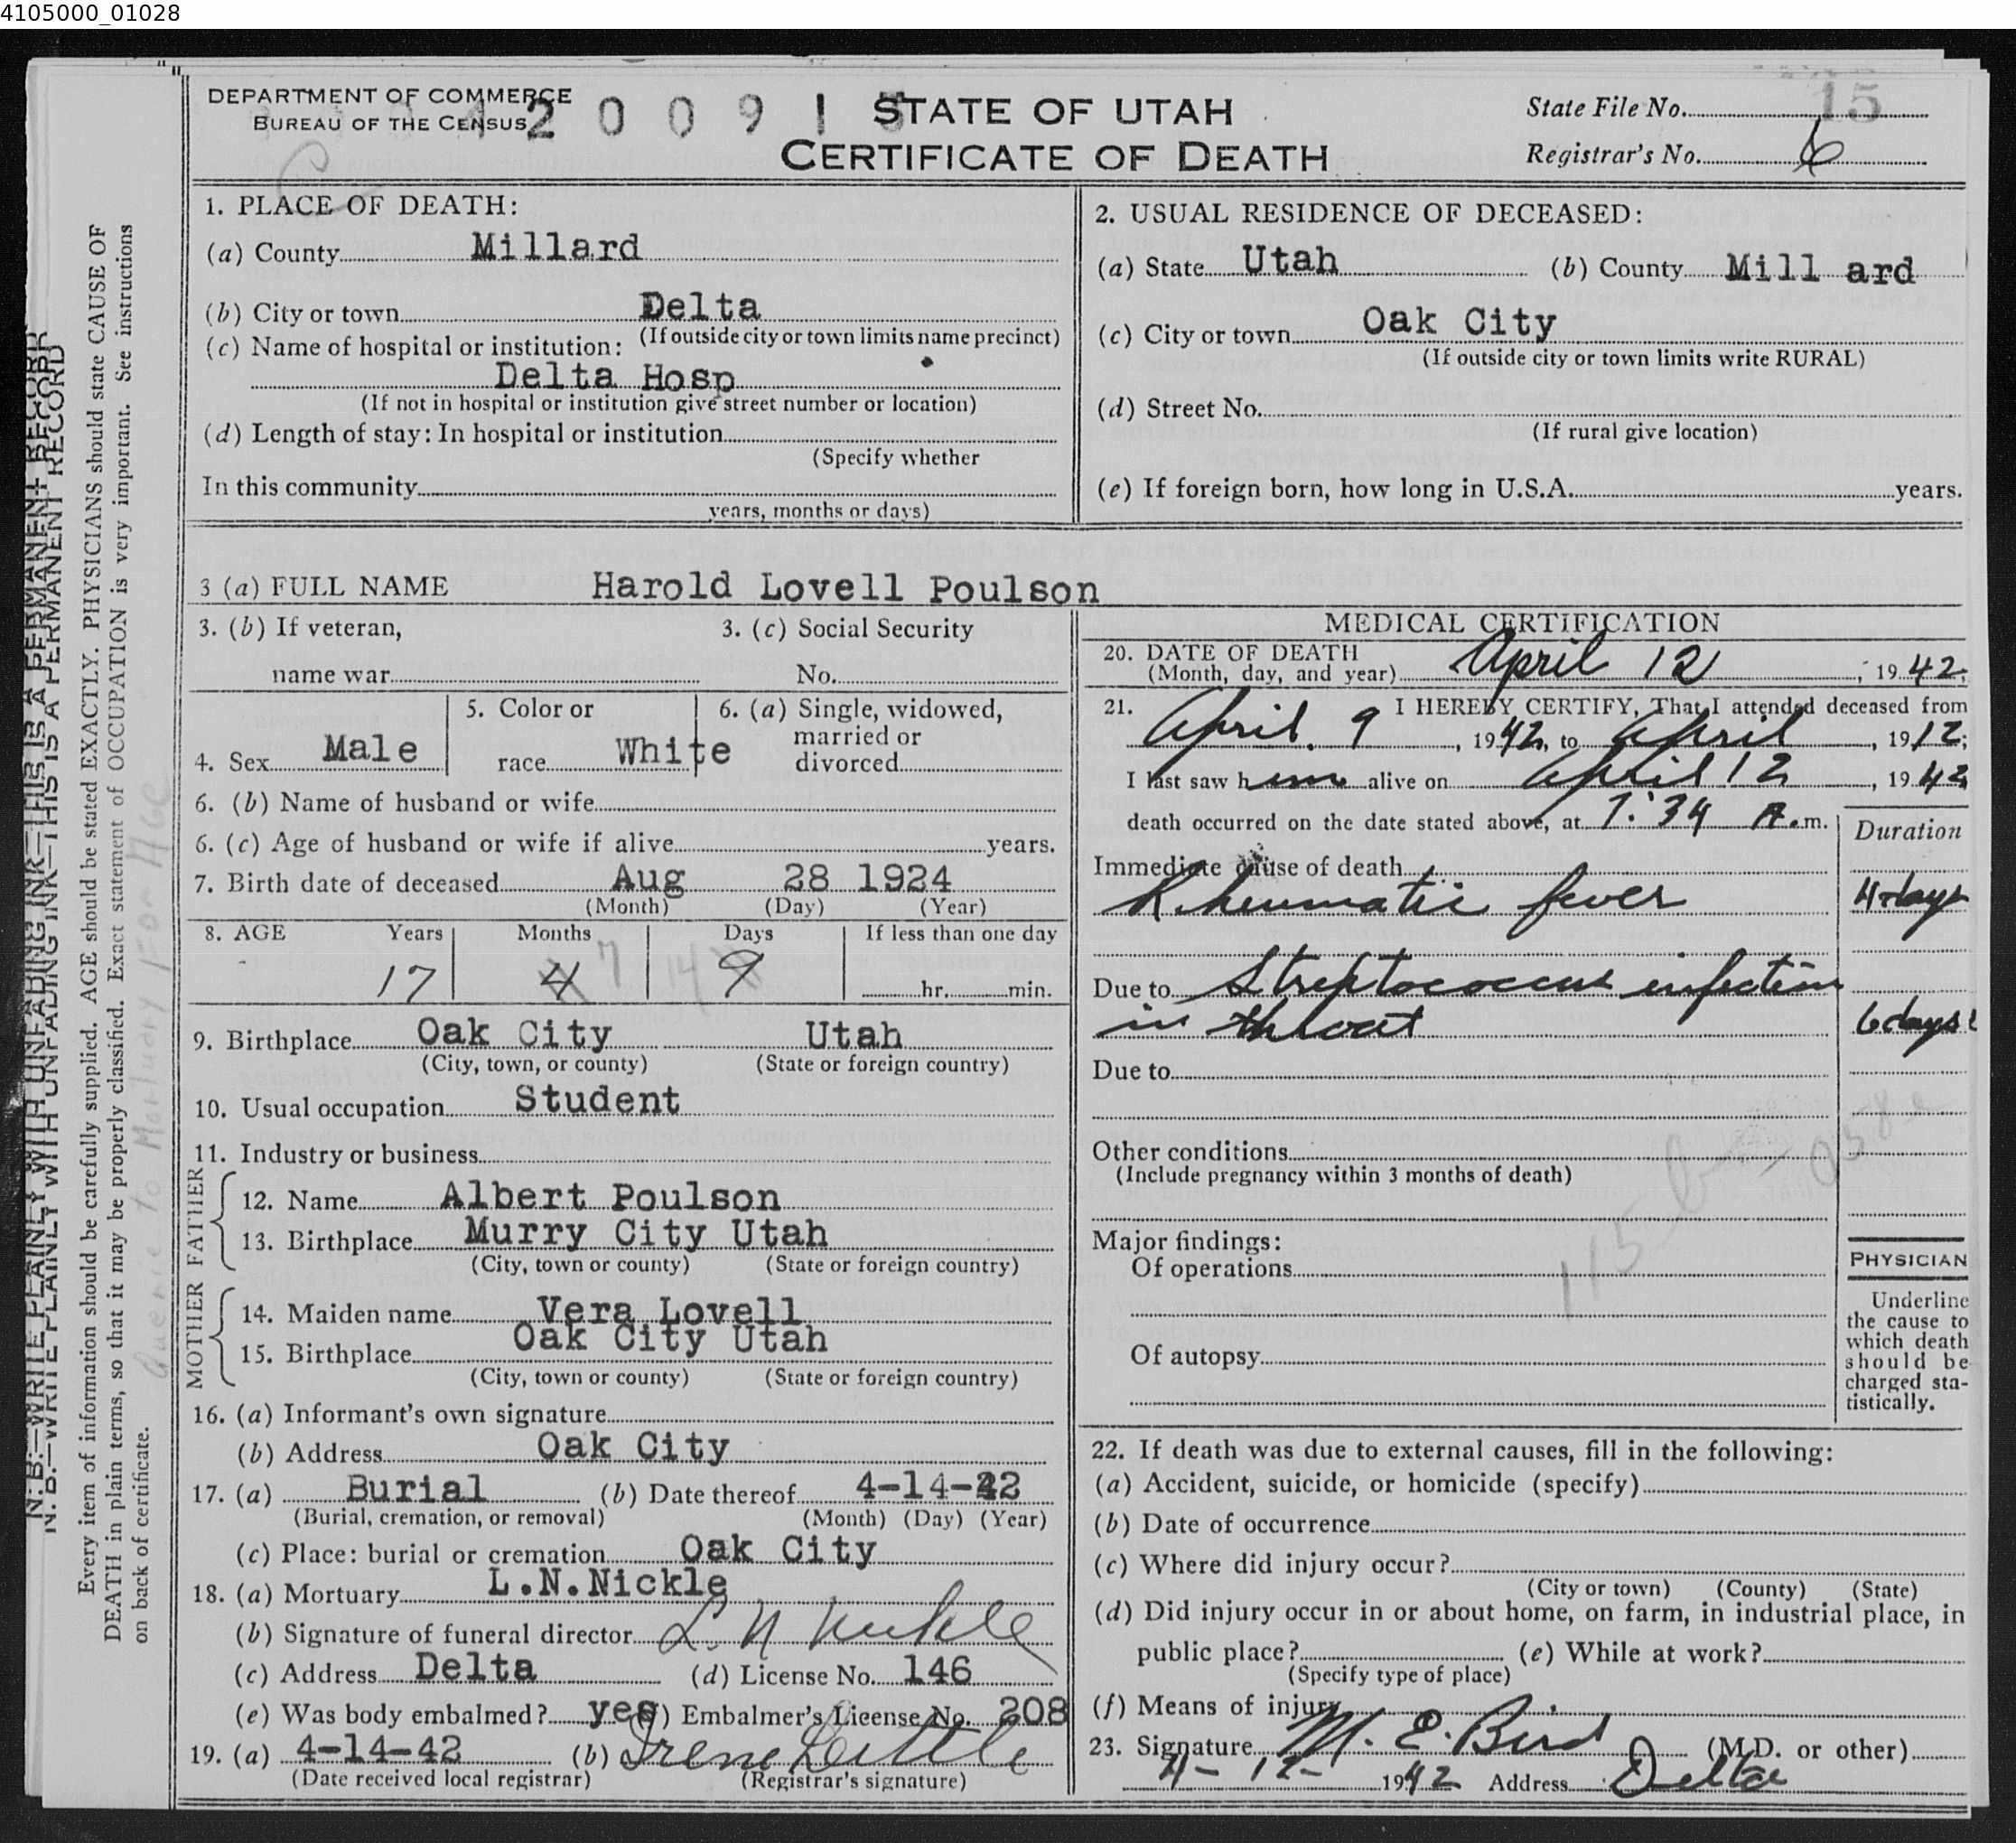 4105000_01028
DEPARTMENT OF COMMERCE
BUREAU OF THE CENSUS
STATE OF UTAH
CERTIFICATE OF DEATH
State File No. 15
Registrar's No. 6
1. PLACE OF DEATH:
(a) County Millard
(b) City or town Delta
(If outside city or town limits name precinct)
(c) Name of hospital or institution:
Delta Hosp
(If not in hospital or institution give street number or location)
(d) Length of stay: In hospital or institution
(Specify whether
In this community
years, months or days)
2. USUAL RESIDENCE OF DECEASED:
(a) State Utah (b) County Mill ard
(c) City or town Oak City
(If outside city or town limits write RURAL)
(d) Street No.
(If rural give location)
(e) If foreign born, how long in U.S.A. years.
3 (a) FULL NAME Harold Lovell Poulson
3. (b) If veteran, 3. (c) Social Security
name war No.
4. Sex Male 5. Color or race White 6. (a) Single, widowed, married or divorced
6. (b) Name of husband or wife
6. (c) Age of husband or wife if alive years.
7. Birth date of deceased Aug 28 1924
(Month) (Day) (Year)
8. AGE Years Months Days If less than one day
17 4 7 14 9 hr. min.
9. Birthplace Oak City Utah
(City, town, or county) (State or foreign country)
10. Usual occupation Student
11. Industry or business
FATHER
12. Name Albert Poulson
13. Birthplace Murry City Utah
(City, town or county) (State or foreign country)
MOTHER
14. Maiden name Vera Lovell
15. Birthplace Oak City Utah
(City, town or county) (State or foreign country)
16. (a) Informant's own signature
(b) Address Oak City
17. (a) Burial (b) Date thereof 4-14-42
(Burial, cremation, or removal) (Month) (Day) (Year)
(c) Place: burial or cremation Oak City
18. (a) Mortuary L.N.Nickle
(b) Signature of funeral director L. N Nickle
(c) Address Delta (d) License No. 146
(e) Was body embalmed? yes (f) Embalmer's License No. 208
19. (a) 4-14-42 (b) Irene Lettle
(Date received local registrar) (Registrar's signature)
MEDICAL CERTIFICATION
20. DATE OF DEATH
(Month, day, and year) April 12, 1942;
21. I HEREBY CERTIFY, That I attended deceased from
April 9, 1942, to April, 1912;
I last saw him alive on April 12, 1942
death occurred on the date stated above, at 7:34 A.m.
Duration
Immediate cause of death
Rheumatic fever 4 days
Due to Streptococcus infection
in throat 6 days
Due to
Other conditions
(Include pregnancy within 3 months of death)
Major findings:
Of operations
Of autopsy
115 b
PHYSICIAN
Underline
the cause to
which death
should be
charged sta-
tistically.
22. If death was due to external causes, fill in the following:
(a) Accident, suicide, or homicide (specify)
(b) Date of occurrence
(c) Where did injury occur?
(City or town) (County) (State)
(d) Did injury occur in or about home, on farm, in industrial place, in
public place? (e) While at work?
(Specify type of place)
(f) Means of injury
23. Signature M. E. Bird (M.D. or other)
4-12- 1942 Address Delta
N. B.—WRITE PLAINLY WITH UNFADING INK—THIS IS A PERMANENT RECORD
Every item of information should be carefully supplied. AGE should be stated EXACTLY. PHYSICIANS should state CAUSE OF
DEATH in plain terms, so that it may be properly classified. Exact statement of OCCUPATION is very important. See instructions
on back of certificate.
to Mortuary For Age